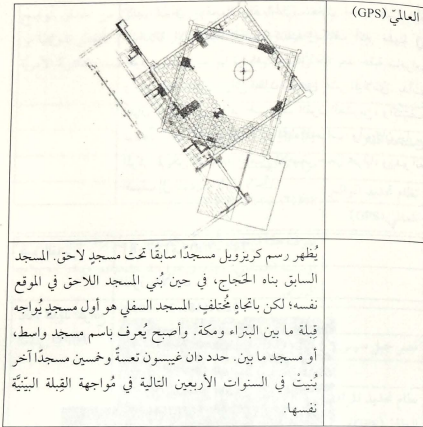 العالميّ (GPS)
يُظهر رسم كريزويل مسجدًا سابقًا تحت مسجدٍ لاحق. المسجد
السابق بناه الحَجاج، في حين بُني المسجد اللاحق في الموقع
نفسه؛ لكن باتجاهٍ مُختلفٍ. المسجد السفلي هو أول مسجدٍ يُواجه
قِبلة ما بين البتراء ومكة. وأصبح يُعرف باسم مسجد واسط،
أو مسجد ما بين. حدد دان غيبسون تعسةً وخمسين مسجدًا آخر
بُنيتْ في السنوات الأربعين التالية في مُواجهة القِبلة البَيّنيَّة
نفسها.